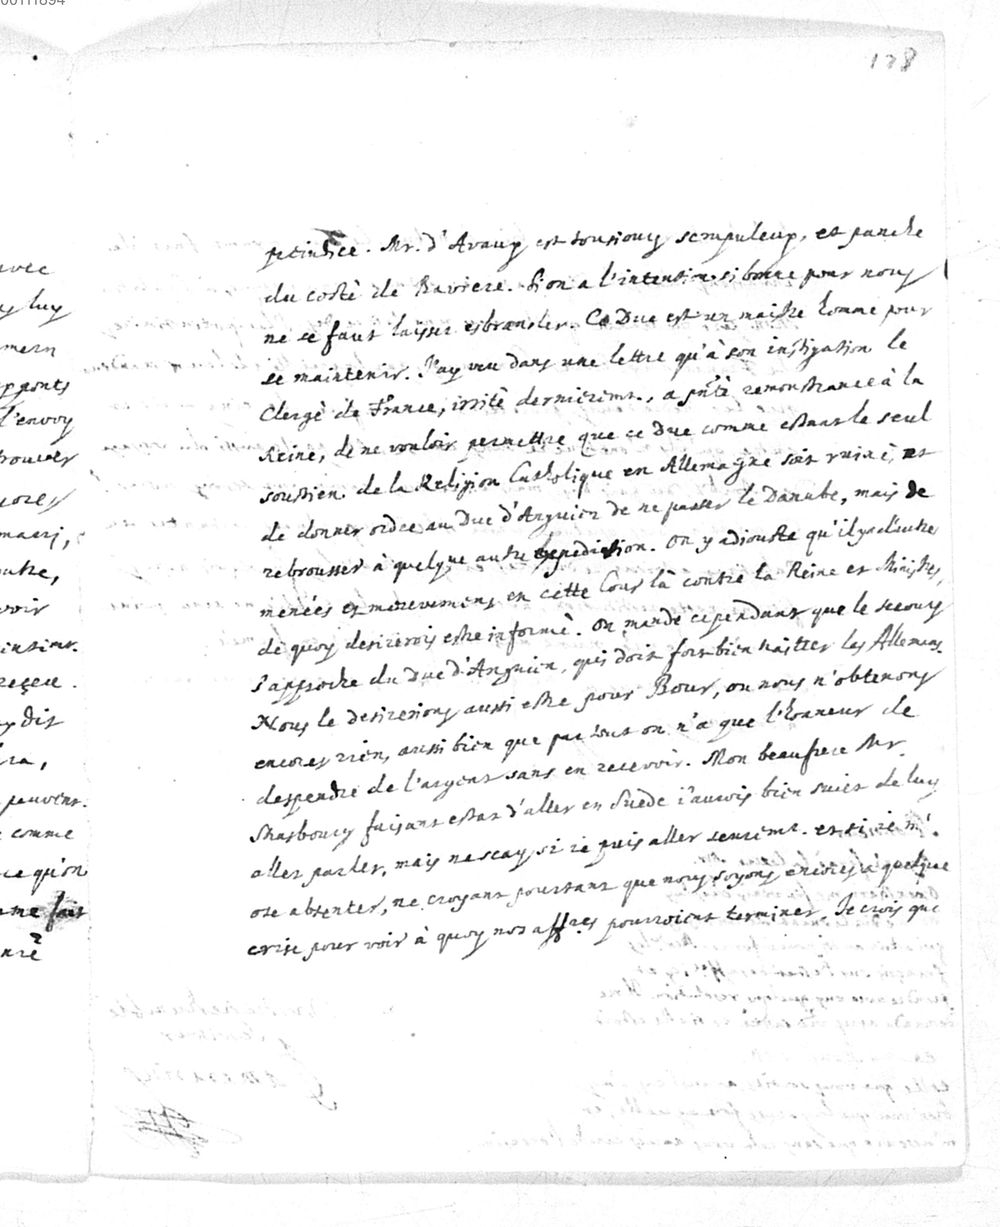 00111894
128
petinsice. Mr. d'Avaux est tousiours scrupuleux, et panche
du costè de Baviere. Si on a l'intention si bonne pour nous
ne se faut laisser esbransler. Ce Duc est un maistre homme pour
se maintenir. J'ay veu dans une lettre qu'à son instigation le
Clergè de France, irritè dernierem.t, a pñtè remonstrance à la
Reine, de ne vouloir permettre que ce Duc comme estant le seul
soustien de la Religion Catholique en Allemagne soit ruinè, et
de donner ordre au Duc d'Anguien de ne passer le Danube, mais de
rebrousser à quelque autre expedition. On y adiouste qu'il y a d'autre
menées et mouvemens en cette Cour là contre la Reine et Ministres,
de quoy desirerois estre informè. On mande cependant que le secours
s'approche du Duc d'Anguien, qui doit fort bien traitter les Allemans.
Nous le desirerions aussi estre pour Bour, ou nous n'obtenons
encores rien, aussi bien que par tout on n'a que l'honneur de
despendre de l'argent sans en recevoir. Mon beaufrere Mr.
Strasbourg faisant estat d'aller en Suede i'aurois bien suiet de luy
aller parler, mais ne scay si ie puis aller seurem.t et si ie m'
ose absenter, ne croyant pourtant que nous soyons encores à quelque
crise pour voir à quoy nos affres pourroient terminer. Je crois que
avec
luy
l'envoy
trouver
autre,
receu.
dit
peuvent.
comme
ce qu'on
me fait